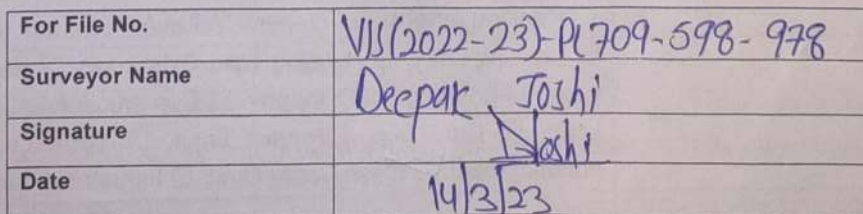 For File No. VIS(2022-23)-PL709-598-978
Surveyor Name Deepak Joshi
Signature DJoshi
Date 14/3/23